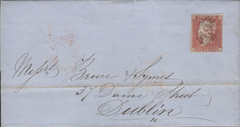 Messrs Bruce & Symes
37 Dame Street
Dublin